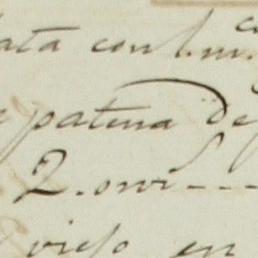 ata con l.m.
patena de
2. onz - - -
viejo en